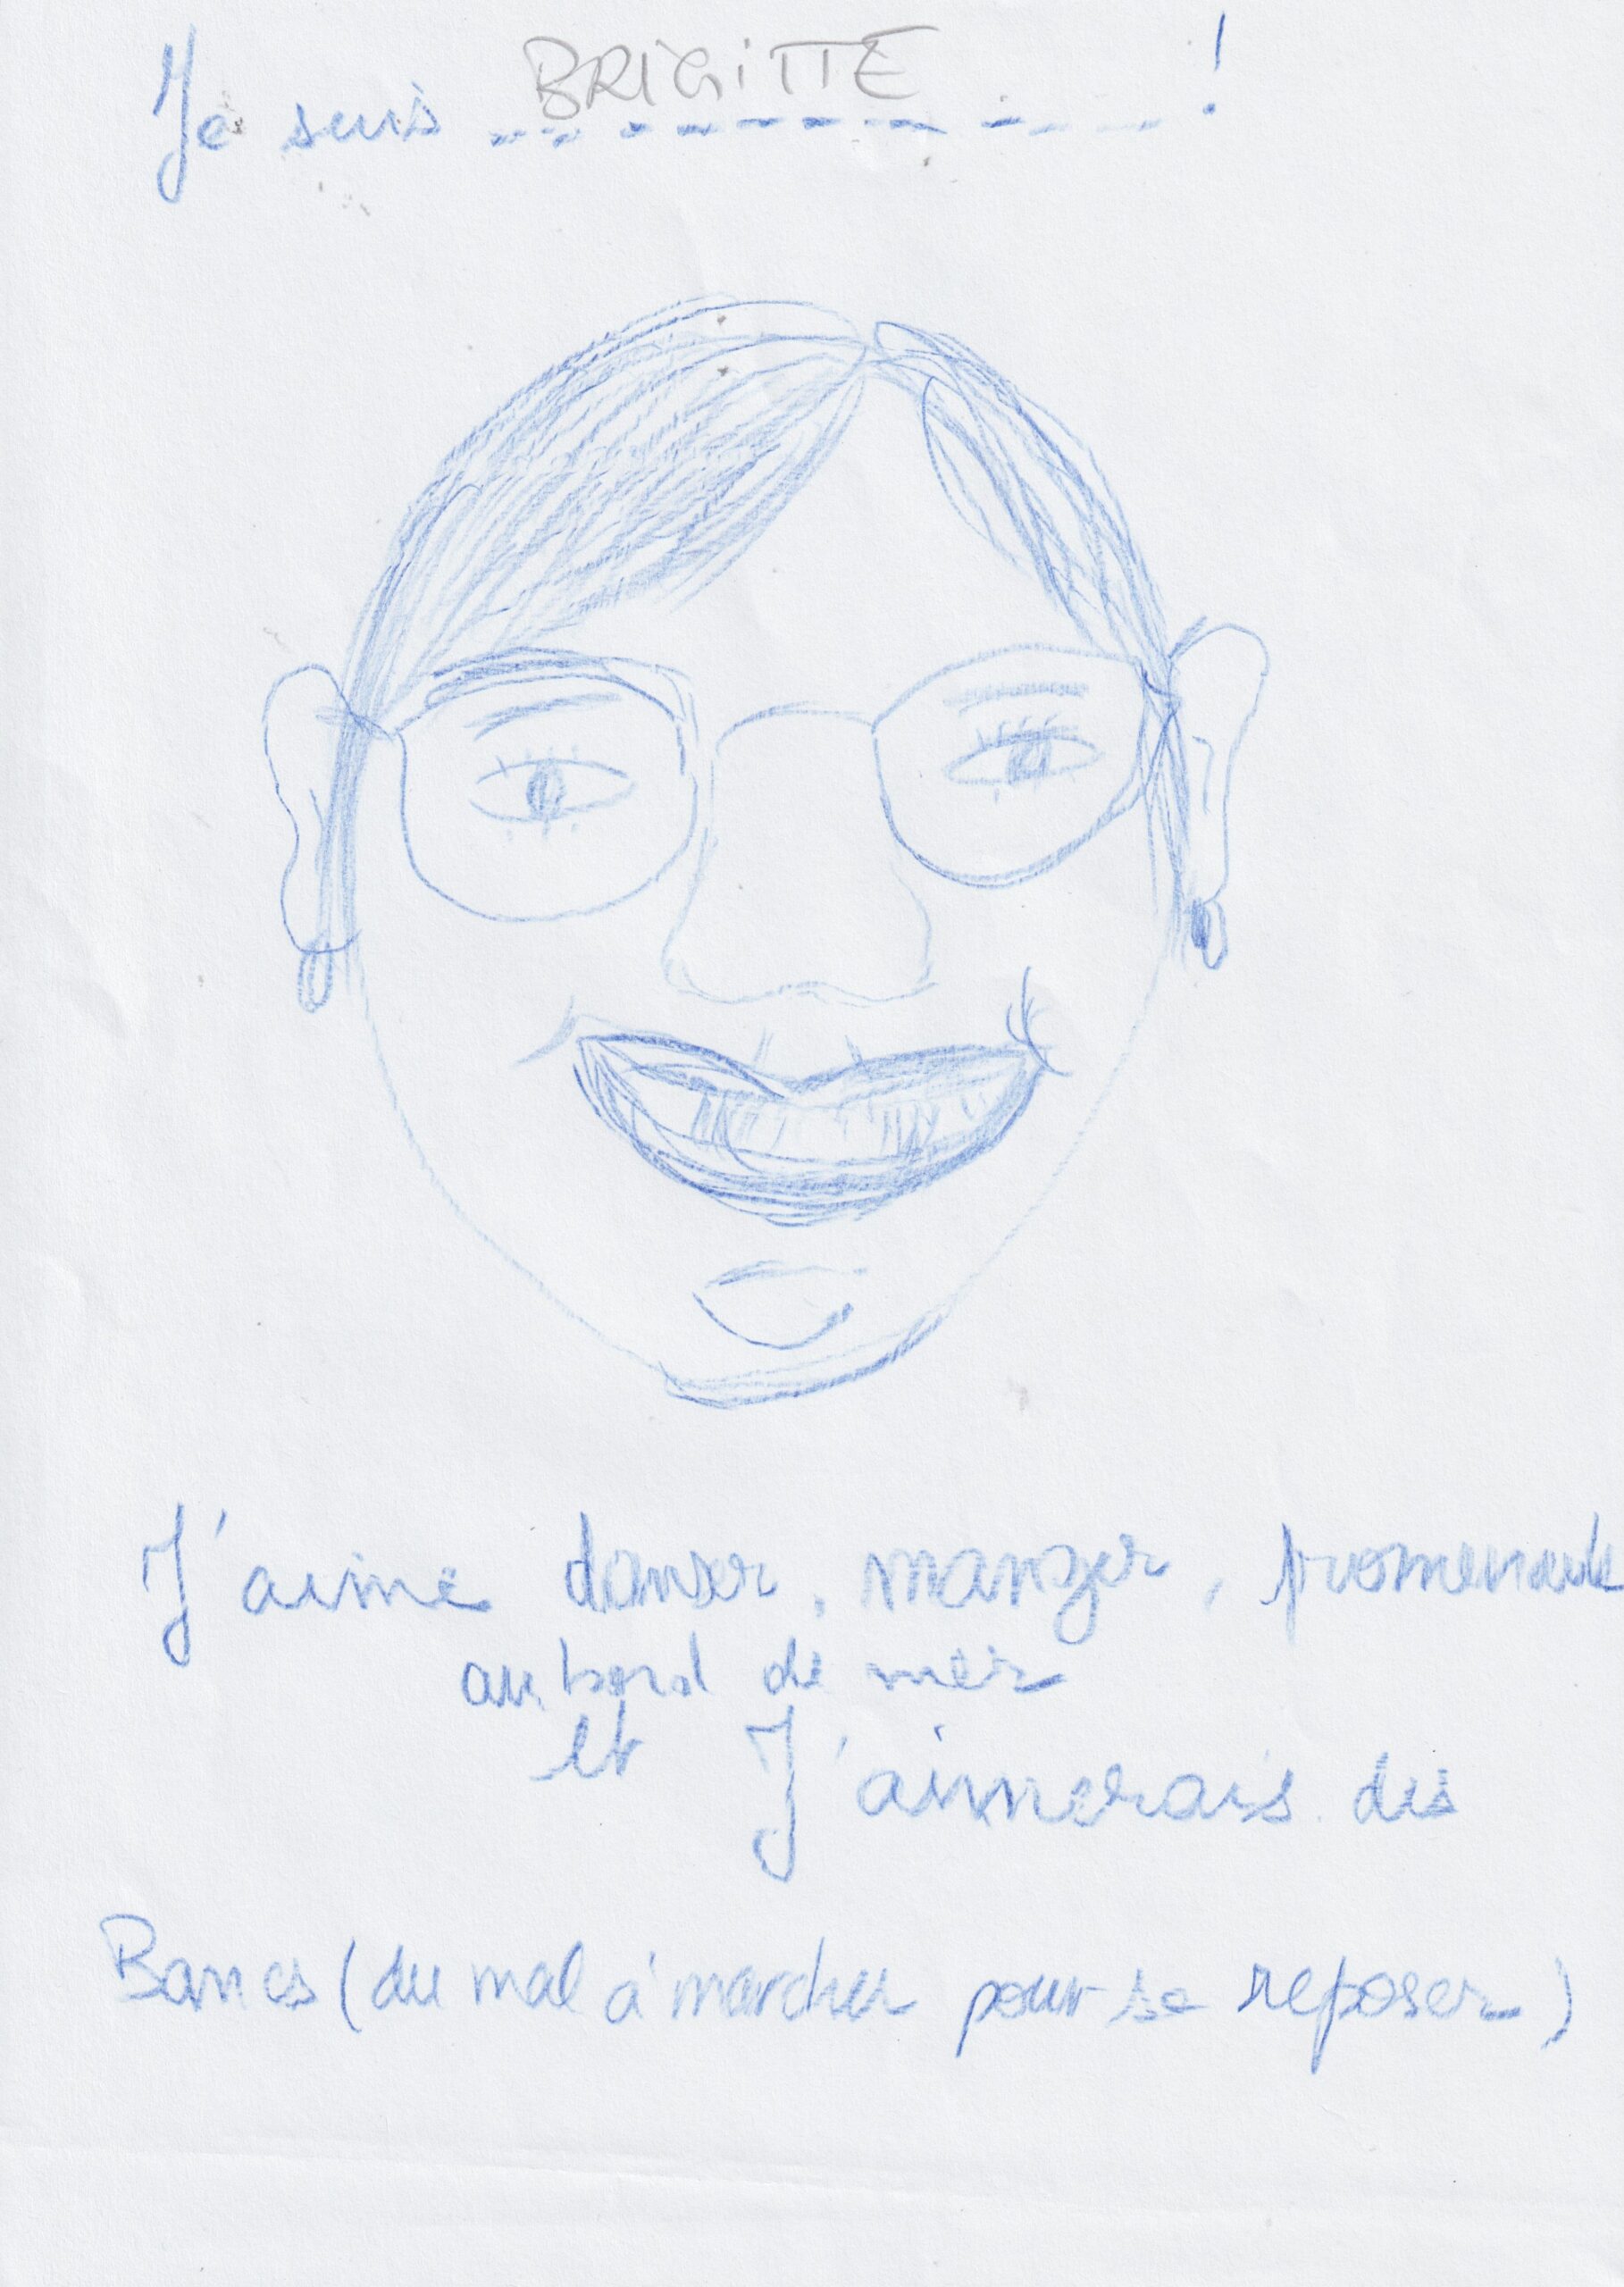 Je suis BRIGITTE !
J'aime danser, manger, promenade
au bord de mer
et J'aimerais des
Bancs (du mal à marcher pour se reposer)